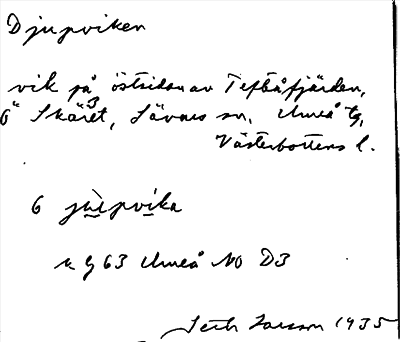 Djupviken
vik på östsidan av Tefteåfjärden,
ö Skäret, Sävars sn, Umeå tg,
Västerbottens l.
6 jùpvika
k g 63 Umeå NO D3
Seth Larsson 1935